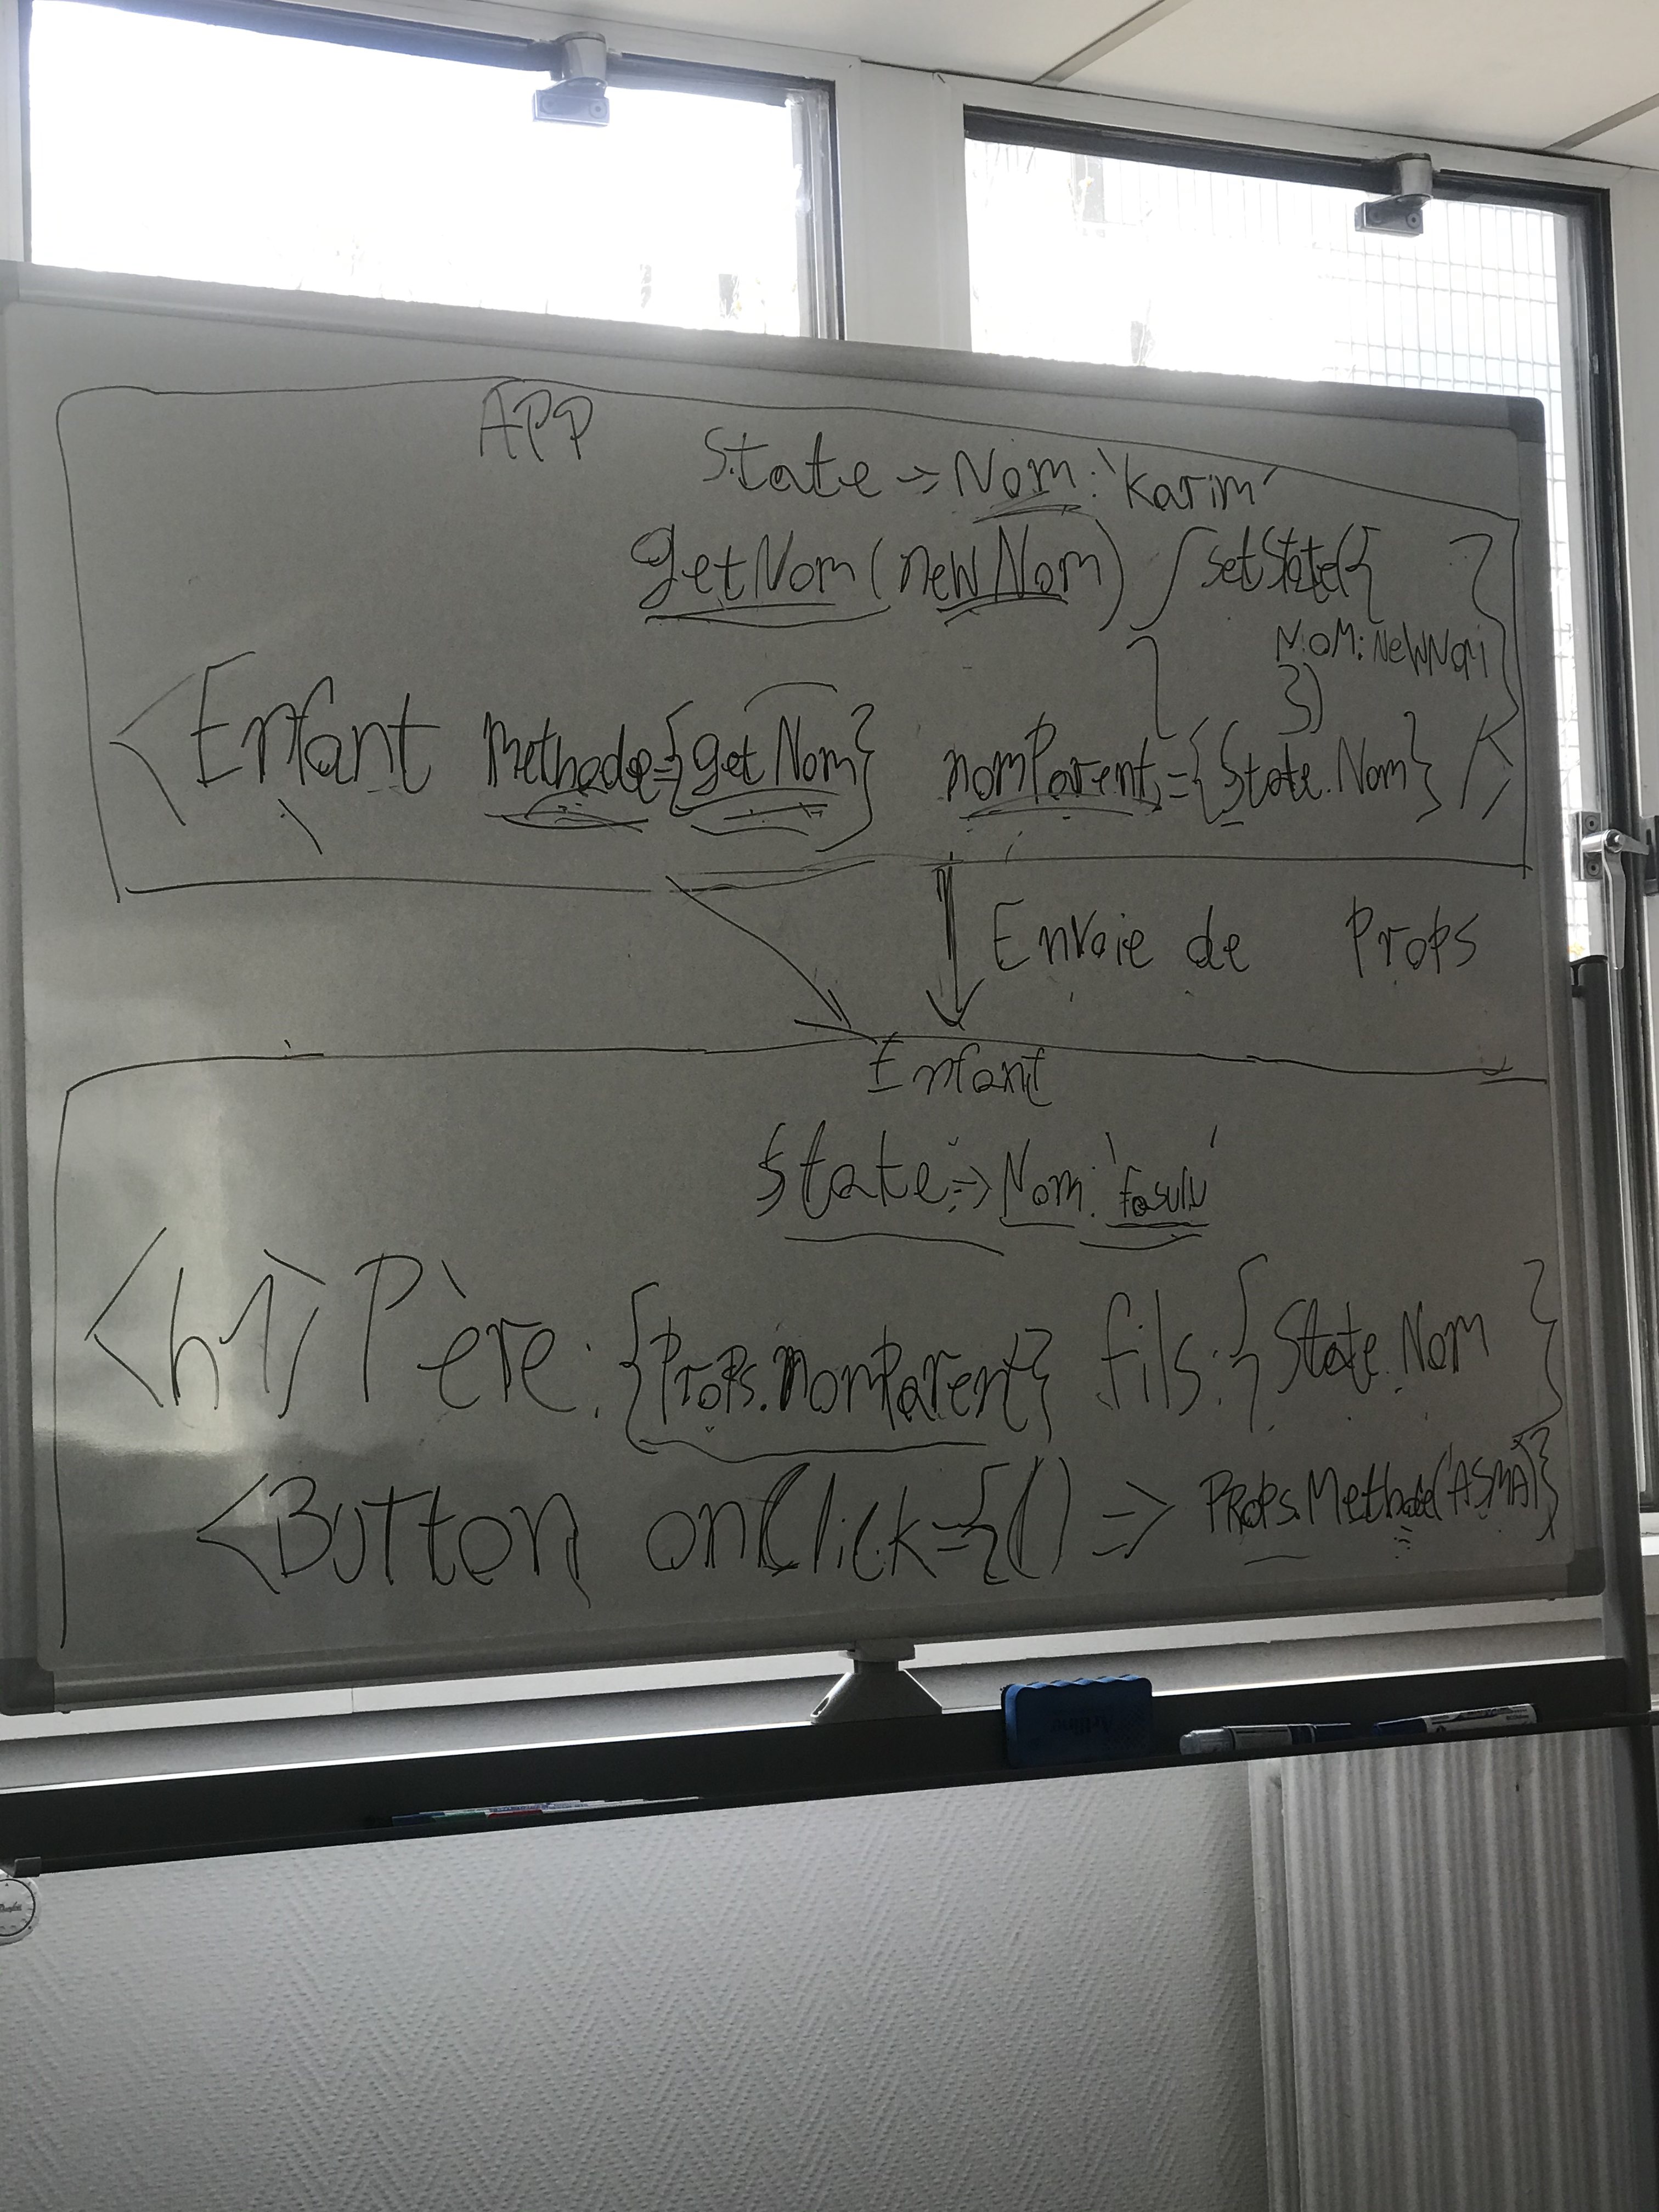 APP
State => Nom: 'Karim'
getNom(newNom) { setState({
NOM: NewNom
})
}
<Enfant Methode={getNom} nomParent={State.Nom} />
Envoie de Props
Enfant
State => Nom:
<h1> Père: {Props.nomParent} fils: {State.Nom}
<Button onClick={() => Props.Methode('ASMA')}